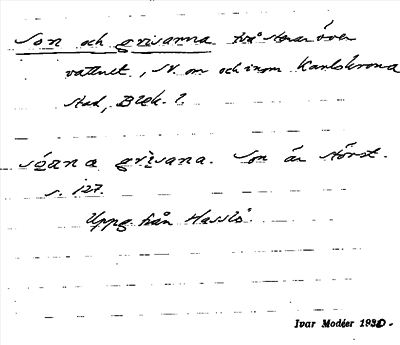 Son och grisarna två stenar över
vattnet, SV. om och inom Karlskrona
stad, Blek. l.
sóana grìsana. Son är störst.
s. 127.
Uppg. från Hasslö
Ivar Modéer 1930.